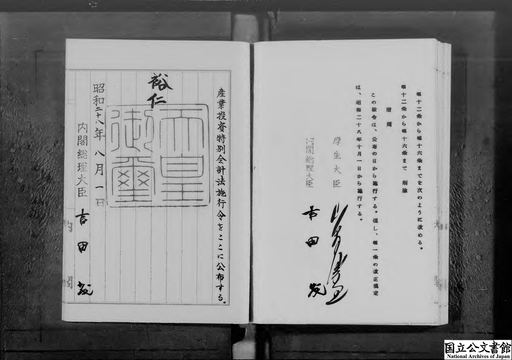 第十二条から第十六条までを次のように改める。
第十二条から第十六条まで 削除
附則
この政令は、公布の日から施行する。但し、第一条の改正規定
は、昭和二十八年十月一日から施行する。
厚生大臣
内閣総理大臣 吉田茂
産業投資特別会計法施行令をここに公布する。
裕仁
天皇御璽
昭和二十八年八月一日
内閣総理大臣 吉田茂
国立公文書館
National Archives of Japan